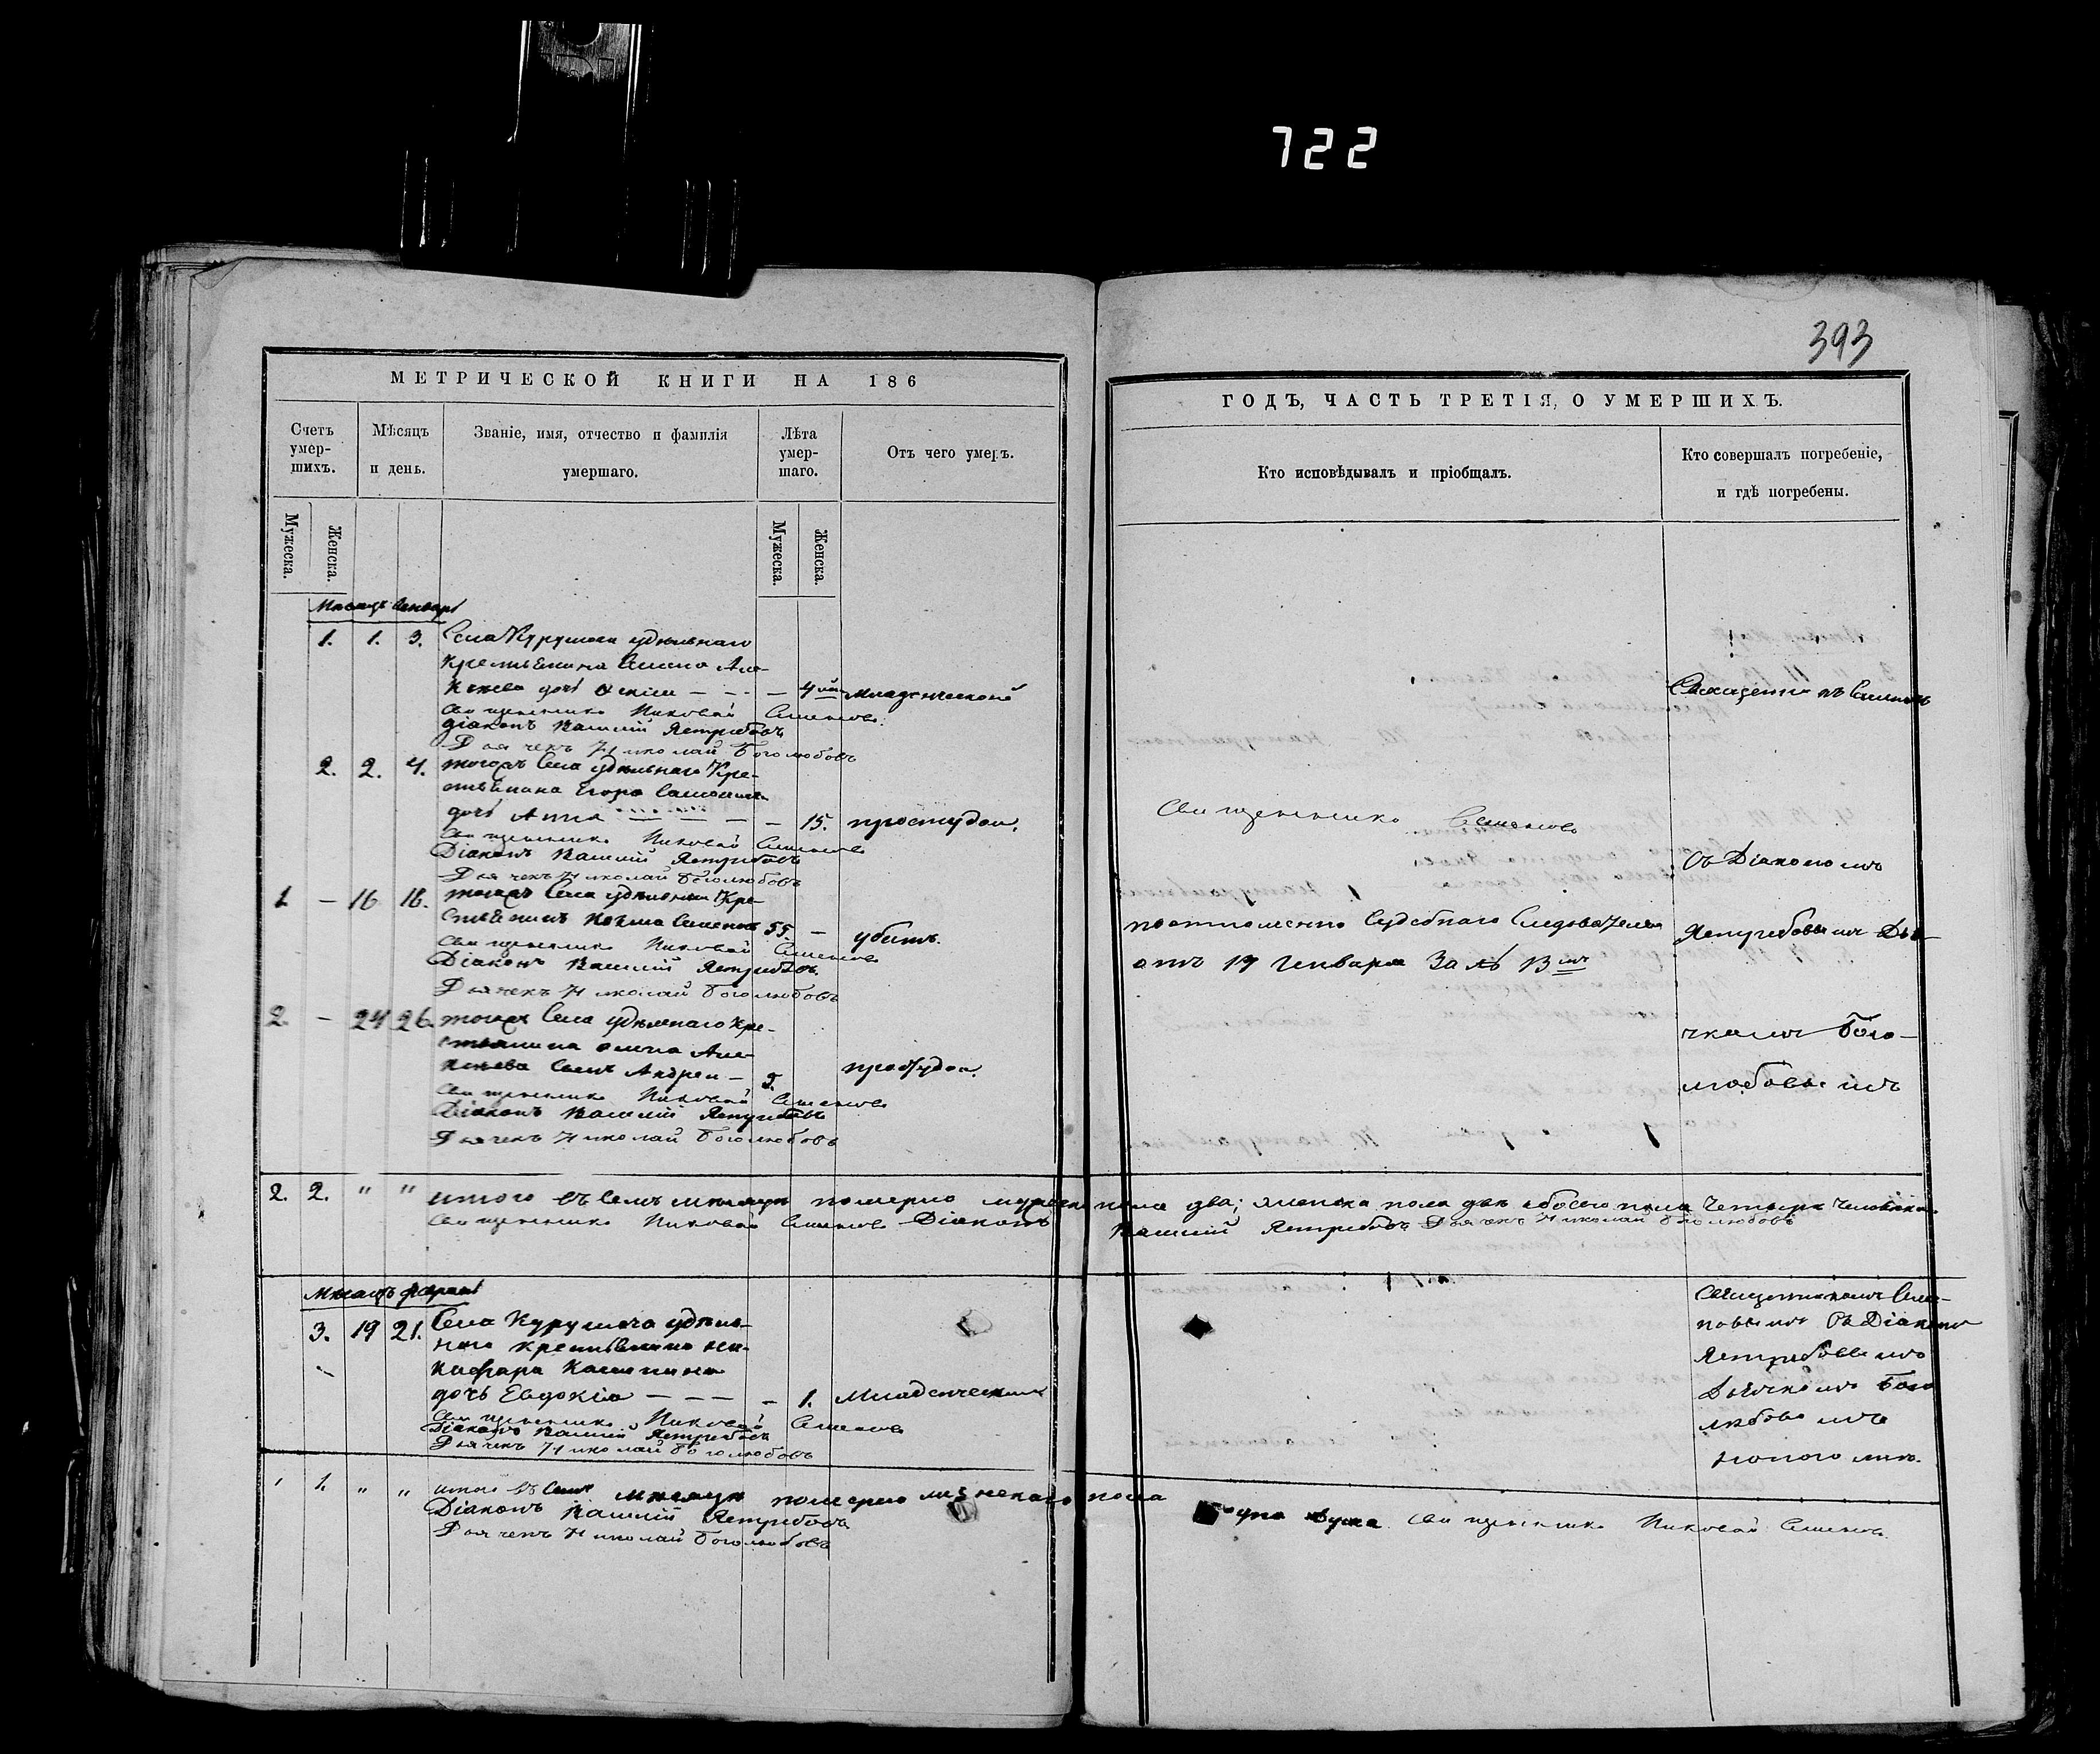 722
393
МЕТРИЧЕСКОЙ КНИГИ НА 186
Счетъ умер-шихъ.
Мѣсяцъ и день.
Званіе, имя, отчество и фамилія умершаго.
Лѣта умер-шаго.
Отъ чего умеръ.
Мужеска.
Женска.
Мужеска.
Женска.
Месяцъ Генварь
1. 1. 3. Села Курумоча удѣльнаго
крестьянина
дочь — — — младенческой
Священникъ Николай Семеновъ
Діаконъ Василій Ястребовъ
Дьячекъ Николай Боголюбовъ
2. 2. 4. тогожъ Села удѣльнаго Кре-
стьянина Егора
дочь Анна — — 15. простудою.
Священникъ Николай Семеновъ
Діаконъ Василій Ястребовъ
Дьячекъ Николай Боголюбовъ
1 — 16 18. тогожъ Села удѣльный Кре-
стьянинъ Козма Семеновъ 55. — убитъ.
Священникъ Николай Семеновъ
Діаконъ Василій Ястребовъ
Дьячекъ Николай Боголюбовъ
2. — 24 26. тогожъ Села удѣльнаго кре-
стьянина
сынъ Андрей — простудою.
Священникъ Николай Семеновъ
Діаконъ Василій Ястребовъ
Дьячекъ Николай Боголюбовъ
2. 2. " " итого въ семъ мѣсяцѣ померло мужеска пола два; женска пола двѣ обоего пола четыре человѣка.
Священникъ Николай Семеновъ Діаконъ Василій Ястребовъ Дьячекъ Николай Боголюбовъ
Мѣсяцъ февраль
3. 19 21. Села Курумоча удѣль-
наго крестьянина Ни-
кифора
дочь Евдокія — — — — 1. Младенческой
Священникъ Николай Семеновъ
Діаконъ Василій Ястребовъ
Дьячекъ Николай Боголюбовъ
1. " " итого въ семъ мѣсяцѣ померло женскаго пола одна душа Священникъ Николай Семеновъ
Діаконъ Василій Ястребовъ
Дьячекъ Николай Боголюбовъ
ГОДЪ, ЧАСТЬ ТРЕТІЯ, О УМЕРШИХЪ.
Кто исповѣдывалъ и пріобщалъ.
Кто совершалъ погребеніе,
и гдѣ погребены.
Священникъ Семеновъ
Священникъ Семеновъ
Съ Діакономъ
по отношенію Судебнаго Слѣдователя
Ястребовымъ Дья-
отъ 17 Генваря За № 13мъ
чкомъ Бого-
любовымъ
Священникомъ Семе-
новымъ Съ Діакономъ
Ястребовымъ
Дьячкомъ Бого
любовымъ